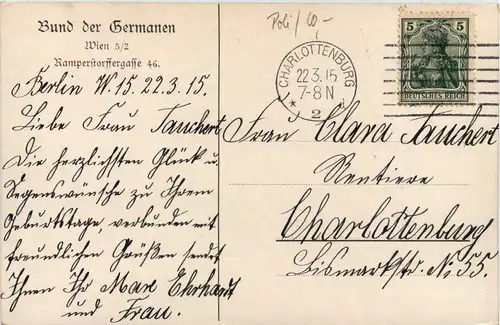 Bund der Germanen
Wien 5/2
Ramperstorffergasse 46.
Berlin W. 15. 22. 3. 15.
Liebe Frau Tauchert
Die herzlichsten Glück u.
Segenswünsche zu Ihrem
Geburtstage, verbunden mit
freundlichen Grüßen sendet
Ihnen Ihr Max Ehrhardt
und Frau.
Poli / 10,-
CHARLOTTENBURG
22.3.15
7-8 N
* 2 d
5 5
DEUTSCHES REICH
Frau Clara Tauchert
Rentiere
Charlottenburg
Bismarkstr. No 55.